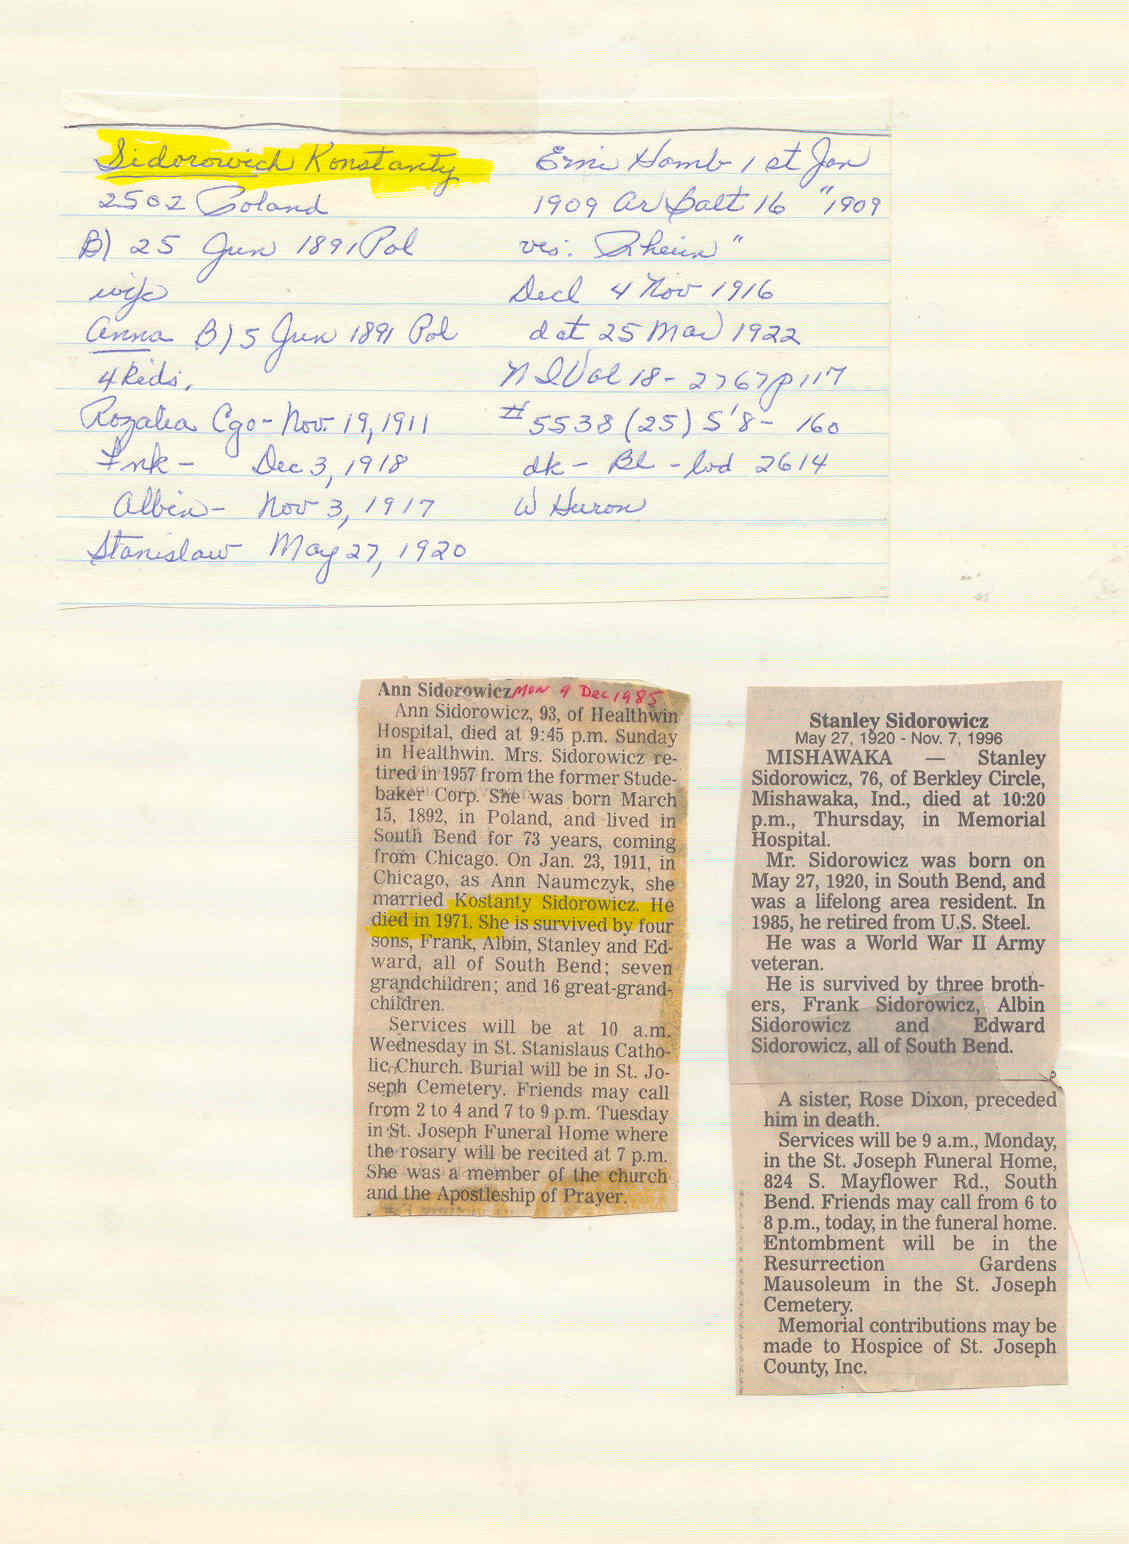 Sidorowich Konstanty
2502 Poland
B) 25 Jun 1891 Pol
wife
Anna B) 5 Jun 1891 Pol
4 Kids,
Rozalia Cgo - Nov. 19, 1911
Fnk - Dec 3, 1918
Albin - Nov 3, 1917
Stanislaw May 27, 1920
Emi Hamb 1 st Jan
1909 Ar Balt 16 " 1909
ves: Rhein"
Decl 4 Nov 1916
dat 25 Mar 1922
Vol 18 - 2767 p 117
# 5538 (25) 5'8 - 160
dk - Bl - lvd 2614
W Huron
Ann Sidorowicz Mon 9 Dec 1985
Ann Sidorowicz, 93, of Healthwin
Hospital, died at 9:45 p.m. Sunday
in Healthwin. Mrs. Sidorowicz re-
tired in 1957 from the former Stude-
baker Corp. She was born March
15, 1892, in Poland, and lived in
South Bend for 73 years, coming
from Chicago. On Jan. 23, 1911, in
Chicago, as Ann Naumczyk, she
married Kostanty Sidorowicz. He
died in 1971. She is survived by four
sons, Frank, Albin, Stanley and Ed-
ward, all of South Bend; seven
grandchildren; and 16 great-grand-
children.
Services will be at 10 a.m.
Wednesday in St. Stanislaus Catho-
lic Church. Burial will be in St. Jo-
seph Cemetery. Friends may call
from 2 to 4 and 7 to 9 p.m. Tuesday
in St. Joseph Funeral Home where
the rosary will be recited at 7 p.m.
She was a member of the church
and the Apostleship of Prayer.
Stanley Sidorowicz
May 27, 1920 - Nov. 7, 1996
MISHAWAKA — Stanley
Sidorowicz, 76, of Berkley Circle,
Mishawaka, Ind., died at 10:20
p.m., Thursday, in Memorial
Hospital.
Mr. Sidorowicz was born on
May 27, 1920, in South Bend, and
was a lifelong area resident. In
1985, he retired from U.S. Steel.
He was a World War II Army
veteran.
He is survived by three broth-
ers, Frank Sidorowicz, Albin
Sidorowicz and Edward
Sidorowicz, all of South Bend.
A sister, Rose Dixon, preceded
him in death.
Services will be 9 a.m., Monday,
in the St. Joseph Funeral Home,
824 S. Mayflower Rd., South
Bend. Friends may call from 6 to
8 p.m., today, in the funeral home.
Entombment will be in the
Resurrection Gardens
Mausoleum in the St. Joseph
Cemetery.
Memorial contributions may be
made to Hospice of St. Joseph
County, Inc.